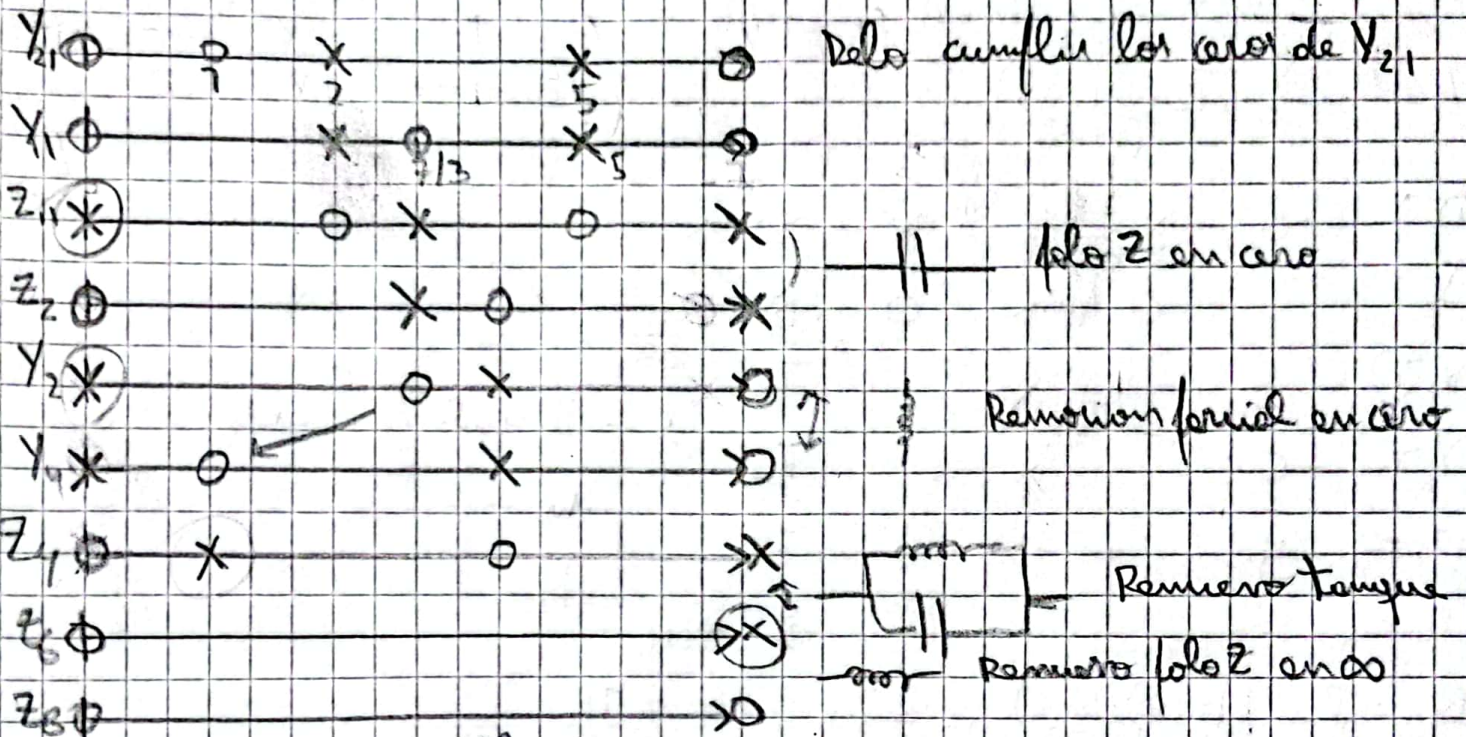 Y21 1 2 5 Debo cumplir los ceros de Y21
Y1 7/3 5
Z1 polo Z en cero
Z2
Y2 Remoción parcial en cero
Y4
Z4 Remuevo tanque
Z6 Remuevo polo Z en ∞
Z8